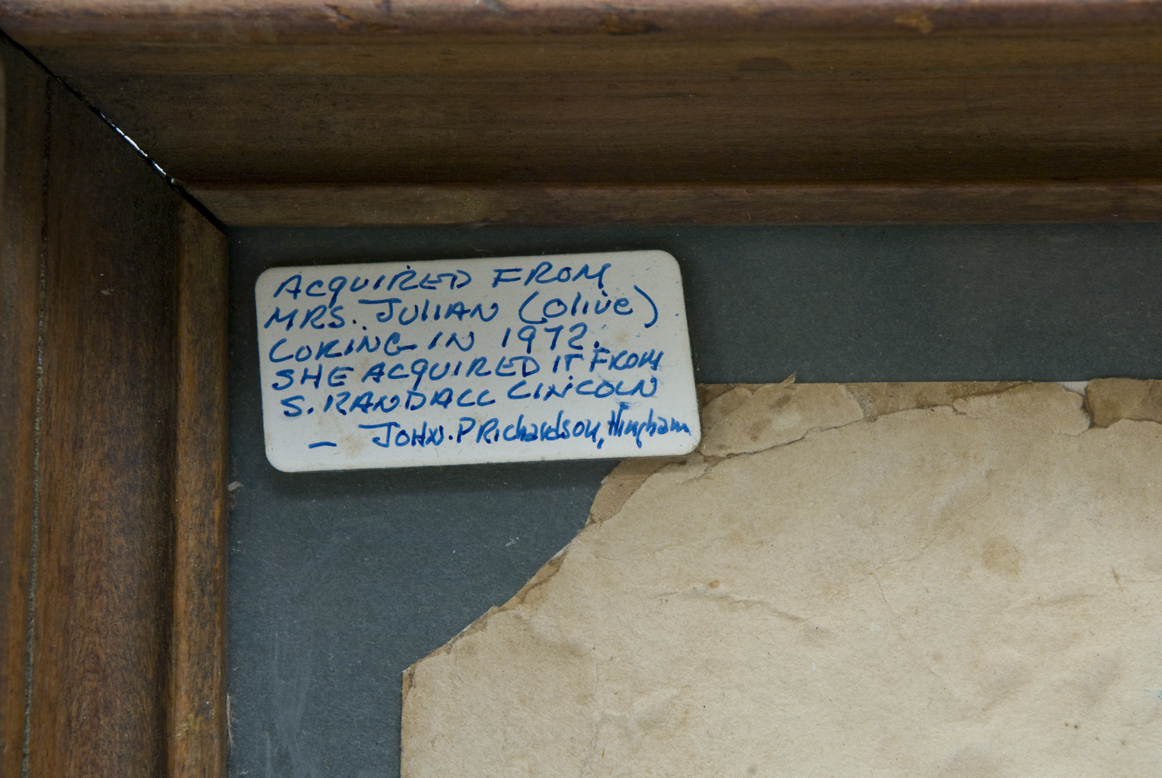 ACQUIRED FROM
MRS. JULIAN (Olive)
LORING IN 1972.
SHE ACQUIRED IT FROM
S. RANDALL LINCOLN
— JOHN. P Richardson, Hingham